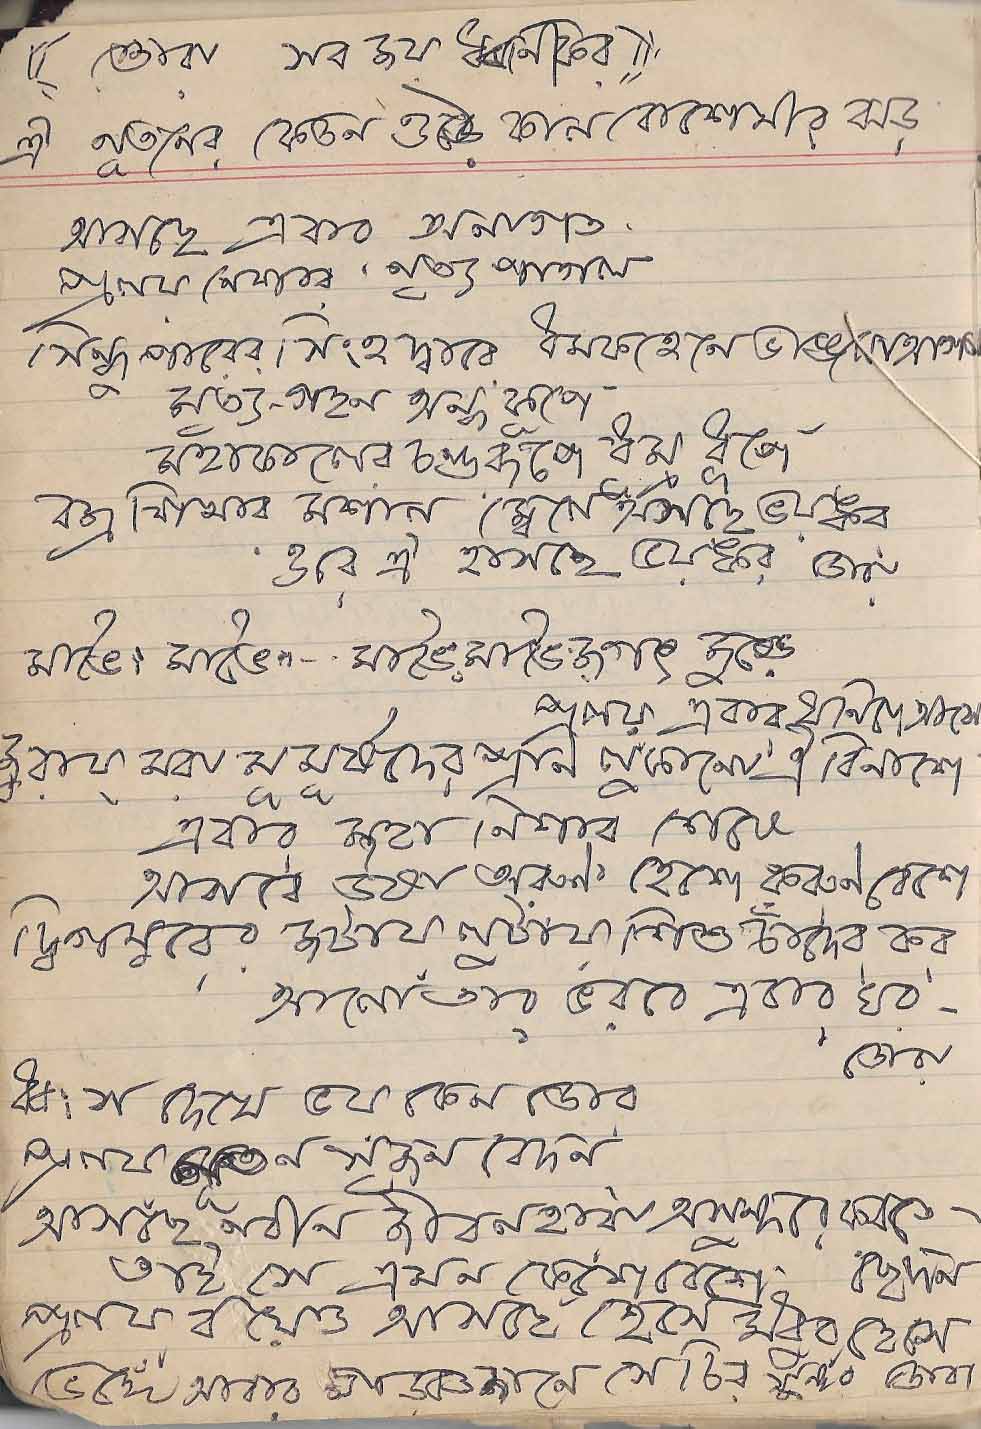 "তোরা সব জয় ধ্বনি কর"
ঐ নূতনের কেতন ওড়ে কাল বোশেখীর ঝড়
আসছে এবার অনাগত
প্রলয় নেশার নৃত্য পাগল
সিন্ধু পারের সিংহ দ্বারে ধমক হেনে ভাঙলো আগল
মৃত্যু-গহন অন্ধ কূপে
মহাকালের চণ্ডরূপে ধূম্র ধূপে
বজ্র শিখার মশাল জ্বেলে আসছে ভয়ঙ্কর
ওরে ঐ হাসছে ভয়ঙ্কর তোরা
মাভৈঃ মাভৈঃ -- মাভৈঃ মাভৈঃ জগৎ জুড়ে
প্রলয় এবার ঘনিয়ে আসে
জরায় মরা মূমূর্ষদের প্রাণ লুকানো ঐ বিনাশে
এবার মহা নিশার শেষে
আসবে ঊষা অরুণ হেসে করুণ বেশে
দ্বিগম্বরের জটায় লুটায় শিশু চাঁদের কর
আলো তার ভরবে এবার ঘর -
তোরা
ধ্বংস দেখে ভয় কেন তোর
প্রলয় নূতন সৃজন বেদন
আসছে নবীন জীবনহারা অসুন্দরে করতে -
তাই সে এমন কেশে বেশে
প্রলয় বয়েও আসছে হেসে মধুর হেসে
ভেঙ্গে আবার গড়তে জানে সে চির সুন্দর তোরা